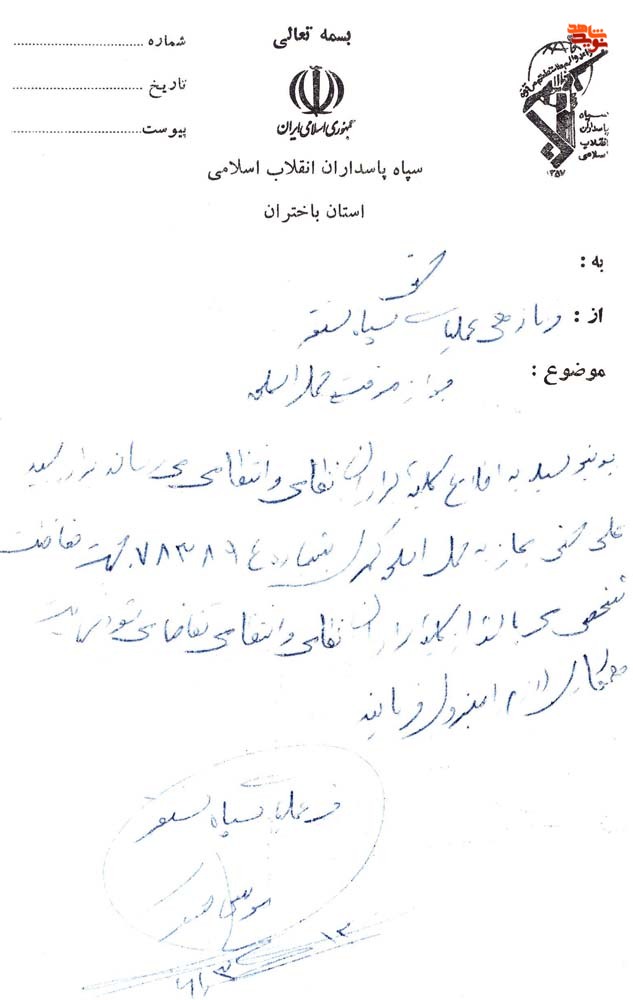 بسمه تعالی
شماره
تاریخ
پیوست
نوید شاهد
جمهوری اسلامی ایران
سپاه
پاسداران
انقلاب
اسلامی
۱۳۵۷
سپاه پاسداران انقلاب اسلامی
استان باختران
به :
از : فرماندهی عملیات سپاه سنقر
موضوع : جواز موقت حمل اسلحه
بدینوسیله به اطلاع کلیه برادران نظامی و انتظامی می رساند برادر سید
علی مجاز به حمل اسلحه کمری بشماره ۷۸۳۸۹۴ جهت حفاظت
شخصی می باشد از کلیه برادران نظامی و انتظامی تقاضا می شود نهایت
همکاری لازم را مبذول فرمایند
عملیات سپاه سنقر
۱۳